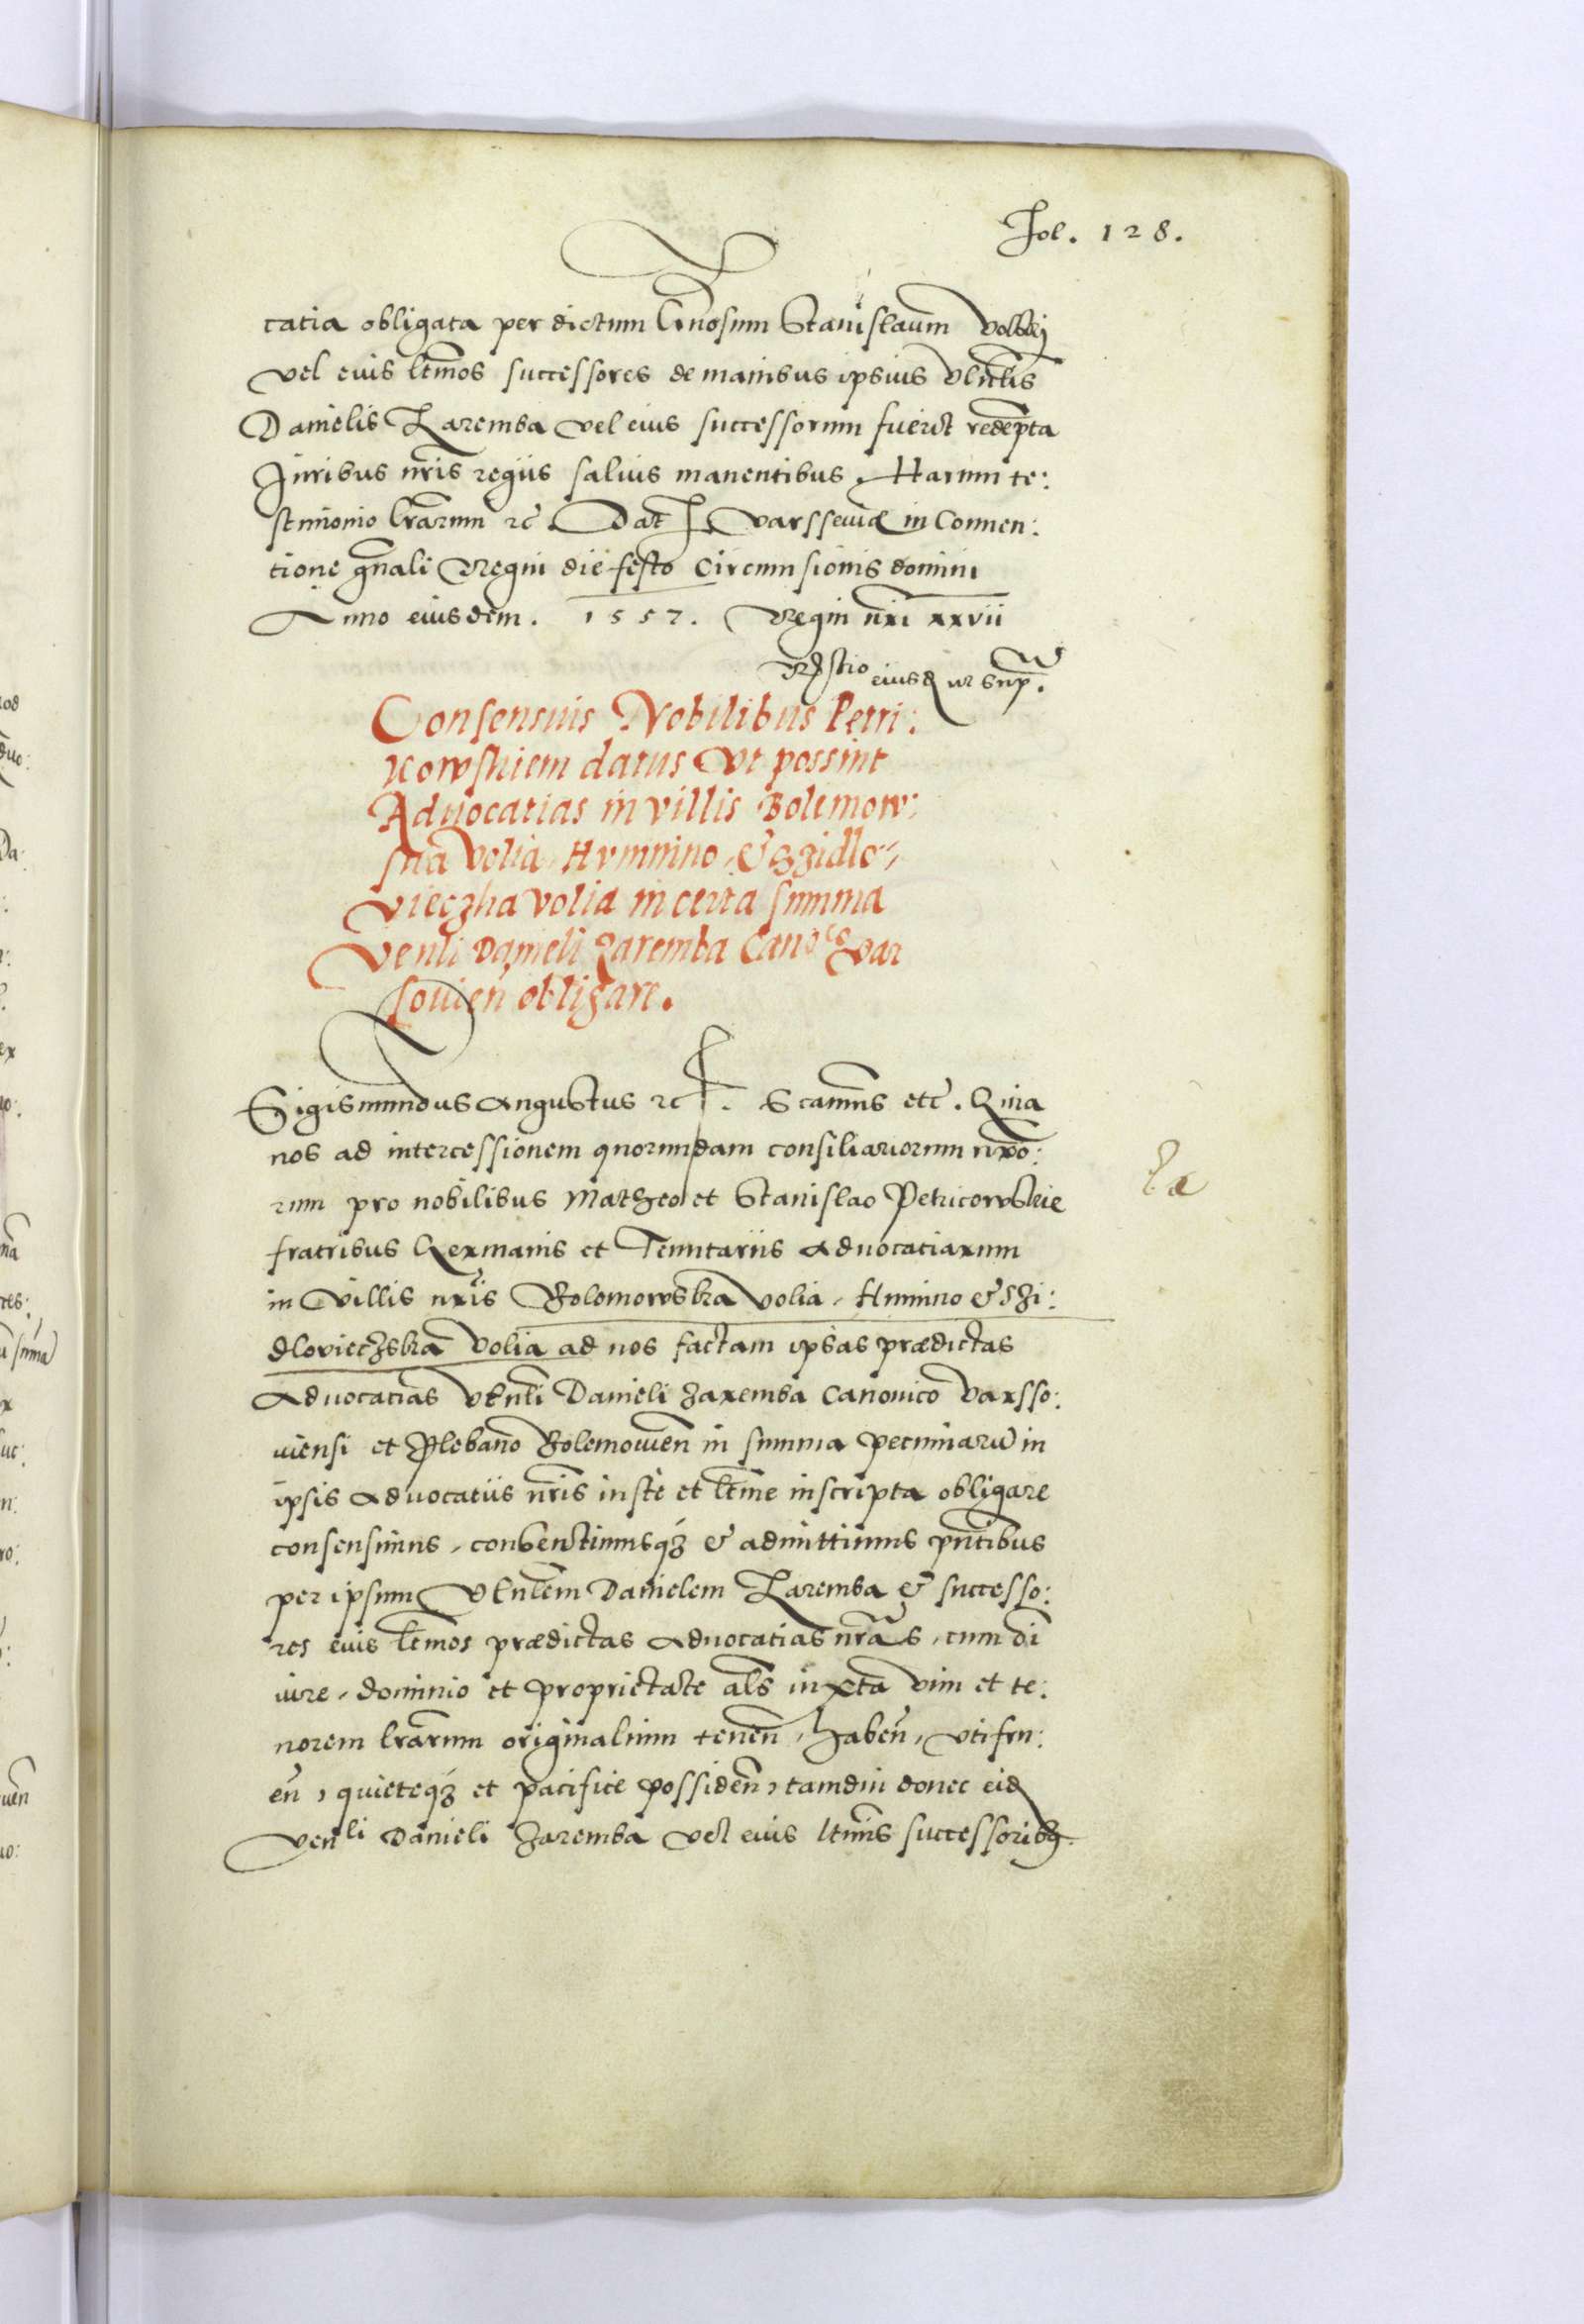 Fol. 128.
catia obligata per dictum Gnosum Stanislaum Volski
vel eius ltmos successores de manibus ipsius Venlis
Danielis Zaremba vel eius successorum fuerit redempta
Juribus nris regiis saluis manentibus. Harum te:
stimonio lrarum etc. Dat Varsseuiae in Conuen:
tione gnali Regni die festo Circumsionis domini
Anno eiusdem. 1557. Regni nri xxvii
eiusd ut sup.
Consensus Nobilibus Petri:
kowskiem datus Vt possint
Aduocatias in villis Bolimow:
ska Volia Humnino, & Szidlo-
vieczka Volia in certa summa
Venli Danieli Zaremba Canoco Var
souien obligare.
Sigismundus Augustus etc. Scamus etc. Quia
nos ad intercessionem quorumdam consiliariorum nro:
rum pro nobilibus Matheo et Stanislao Petricowskie
fratribus Germanis et Tenutariis Aduocatiarum
in Villis nris Bolomowska Volia, Humino & Szi:
dlovieczska Volia ad nos factam ipsas prædictas
Aduocatias Venli Danieli Zaremba Canonico Varsso:
uiensi et Plebano Bolemouien in summa pecuniaru in
ipsis Aduocatiis nris iuste et ltme inscripta obligare
consensimus, consentimusqz & admittimus pntibus
per ipsum Venlem Danielem Zaremba & successo:
res eius ltmos prædictas Aduocatias nras, cum oi
iure, dominio et proprietate als iuxta vim et te:
norem lrarum originalium tenen, haben, vti fru:
en, quieteqz et pacifice possiden, tamdiu donec eid
Venli Danieli Zaremba vel eius ltimis successoribz